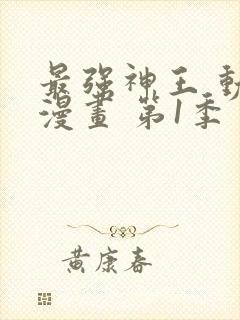 最强神王 動
漫畫 第1季
黄康春